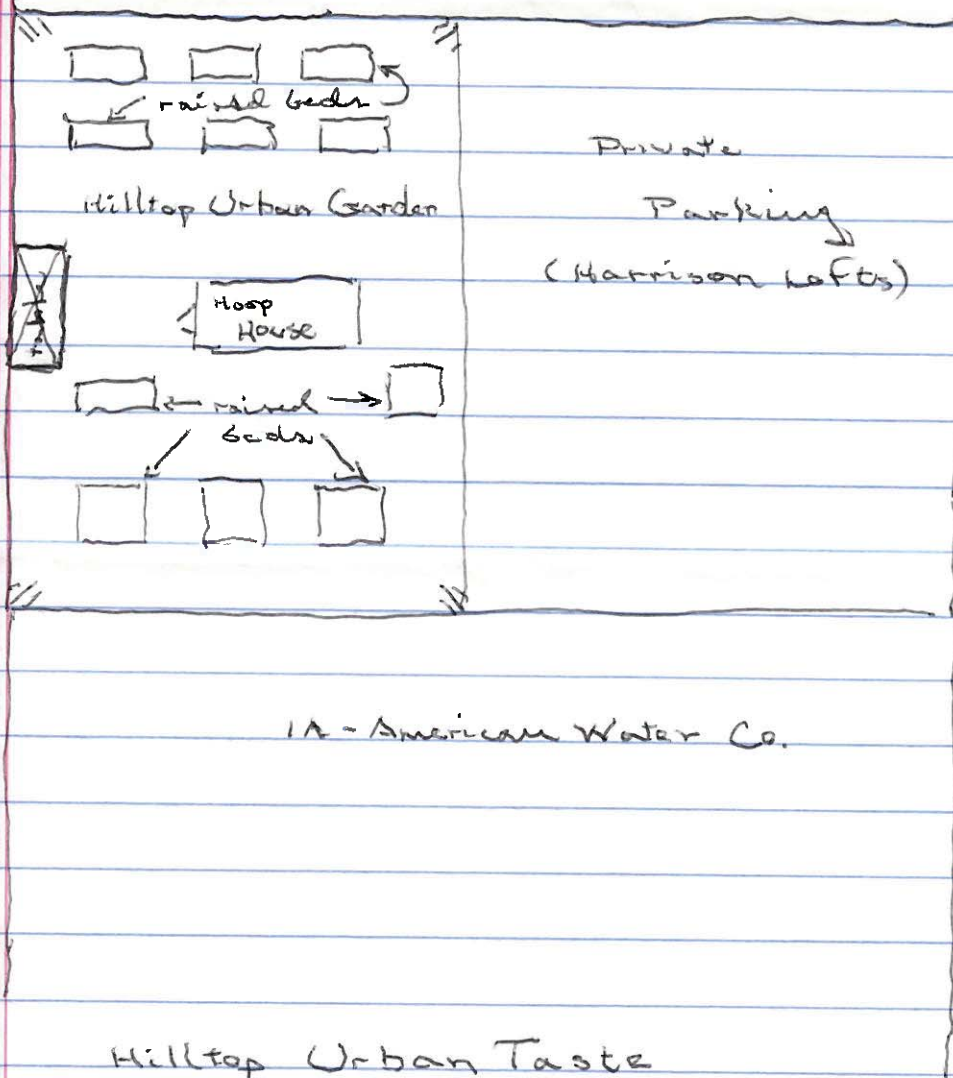 raised beds
Hilltop Urban Garden
Hoop
House
raised
beds
Private
Parking
(Harrison Lofts)
IA - American Water Co.
Hilltop Urban Taste